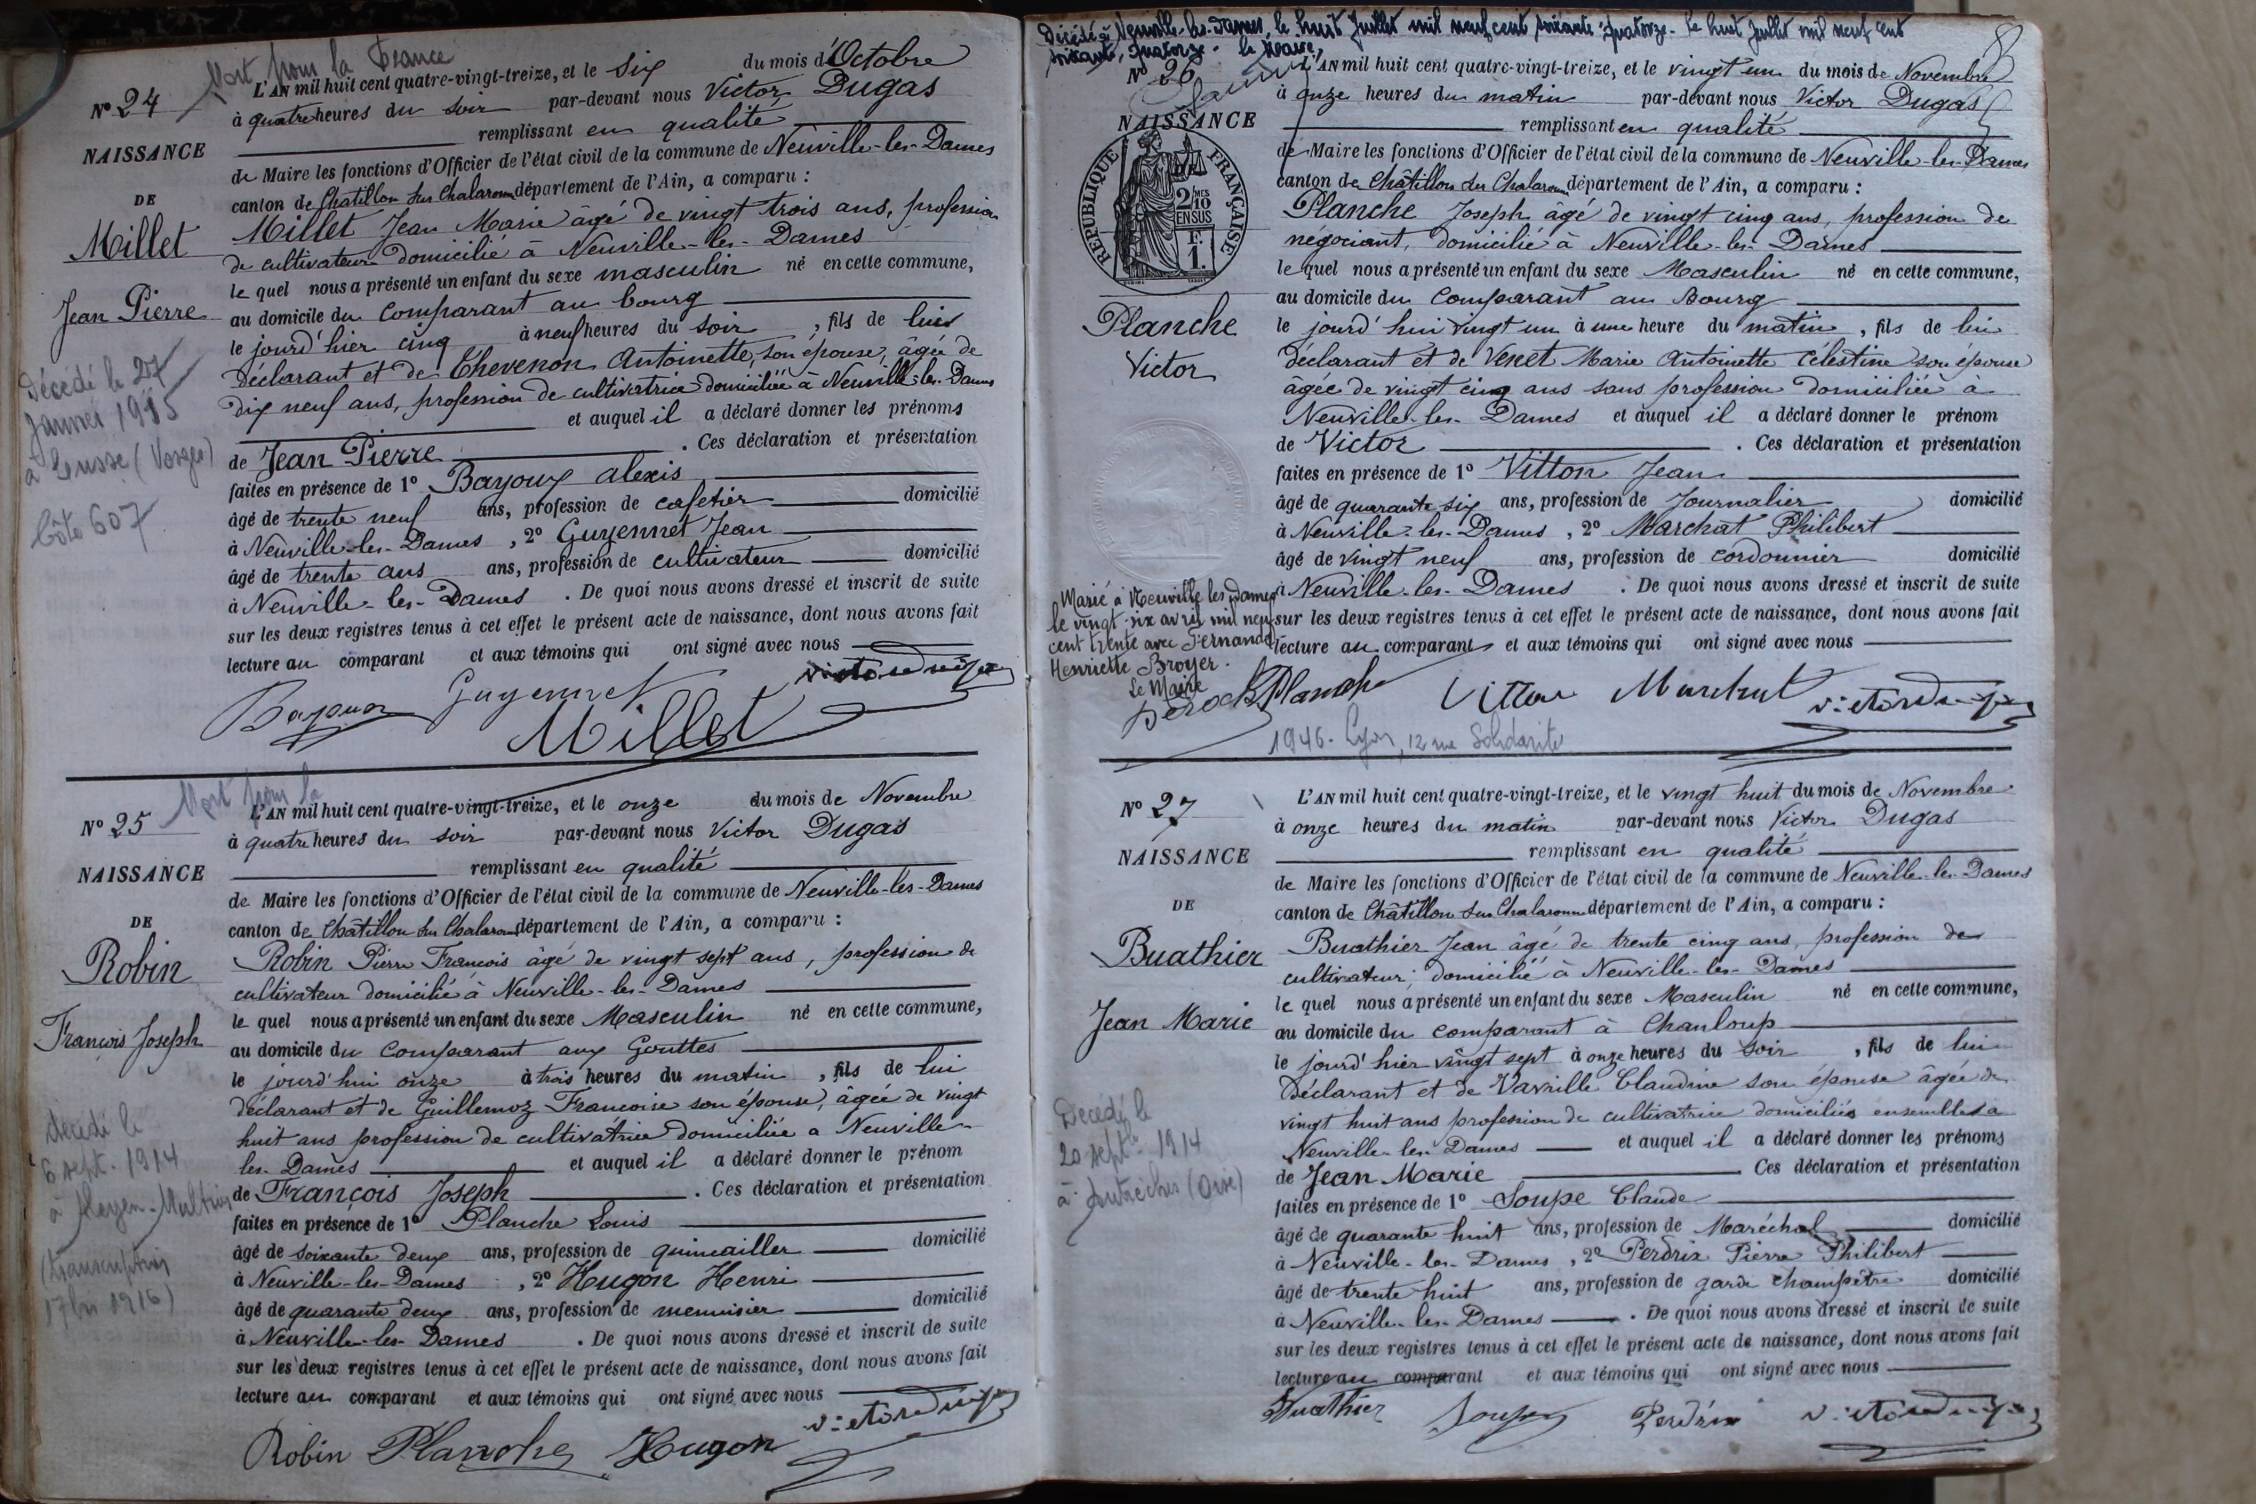 Mort pour la France
N° 24
NAISSANCE
DE
Millet
Jean Pierre
Décédé le 27
Janvier 1915
à Lusse (Vosges)
Côte 607
L'AN mil huit cent quatre-vingt-treize, et le six du mois d'Octobre
à quatre heures du soir par-devant nous Victor Dugas
remplissant en qualité
de Maire les fonctions d'Officier de l'état civil de la commune de Neuville-les-Dames
canton de Châtillon sur Chalaronne département de l'Ain, a comparu :
Millet Jean Marie âgé de vingt trois ans, profession
de cultivateur domicilié à Neuville-les-Dames
le quel nous a présenté un enfant du sexe masculin né en cette commune,
au domicile du comparant au bourg
le jourd'hier cinq à neuf heures du soir, fils de lui
déclarant et de Chevenon Antoinette, son épouse, âgée de
dix neuf ans, profession de cultivatrice domiciliée à Neuville-les-Dames
et auquel il a déclaré donner les prénoms
de Jean Pierre. Ces déclaration et présentation
faites en présence de 1° Bayoux Alexis
âgé de trente neuf ans, profession de cafetier domicilié
à Neuville-les-Dames, 2° Guyennet Jean
âgé de trente ans ans, profession de cultivateur domicilié
à Neuville-les-Dames. De quoi nous avons dressé et inscrit de suite
sur les deux registres tenus à cet effet le présent acte de naissance, dont nous avons fait
lecture au comparant et aux témoins qui ont signé avec nous
Bayoux Guyennet Millet victor dugas
Mort pour la
N° 25
NAISSANCE
DE
Robin
François Joseph
décédé le
6 sept. 1914
à
(transcription
1916)
L'AN mil huit cent quatre-vingt-treize, et le onze du mois de Novembre
à quatre heures du soir par-devant nous Victor Dugas
remplissant en qualité
de Maire les fonctions d'Officier de l'état civil de la commune de Neuville-les-Dames
canton de Châtillon sur Chalaronne département de l'Ain, a comparu :
Robin Pierre François âgé de vingt sept ans, profession de
cultivateur domicilié à Neuville-les-Dames
le quel nous a présenté un enfant du sexe Masculin né en cette commune,
au domicile du comparant aux Gouttes
le jourd'hui onze à trois heures du matin, fils de lui
déclarant et de Guillemoz Françoise son épouse, âgée de vingt
huit ans profession de cultivatrice domiciliée a Neuville-
les-Dames et auquel il a déclaré donner le prénom
de François Joseph. Ces déclaration et présentation
faites en présence de 1° Planche Louis
âgé de soixante deux ans, profession de quincailler domicilié
à Neuville-les-Dames, 2° Hugon Henri
âgé de quarante deux ans, profession de menuisier domicilié
à Neuville-les-Dames. De quoi nous avons dressé et inscrit de suite
sur les deux registres tenus à cet effet le présent acte de naissance, dont nous avons fait
lecture au comparant et aux témoins qui ont signé avec nous
Robin Planche Hugon victor dugas
Décédé à Neuville-les-Dames, le huit Juillet mil neuf cent soixante-quatorze. le huit Juillet mil neuf cent
soixante, quatorze. le Maire,
N° 26
NAISSANCE
REPUBLIQUE FRANÇAISE
2/10 MES
EN SUS
F.
1.
Planche
Victor
Marié à Neuville les Dames
le vingt-six avril mil neuf
cent trente avec Fernande
Henriette Broyer.
Le Maire
L'AN mil huit cent quatre-vingt-treize, et le vingt un du mois de Novembre
à onze heures du matin par-devant nous Victor Dugas
remplissant en qualité
de Maire les fonctions d'Officier de l'état civil de la commune de Neuville-les-Dames
canton de Châtillon sur Chalaronne département de l'Ain, a comparu :
Planche Joseph âgé de vingt cinq ans, profession de
négociant, domicilié à Neuville-les-Dames
le quel nous a présenté un enfant du sexe Masculin né en cette commune,
au domicile du comparant au Bourg
le jourd'hui vingt un à une heure du matin, fils de lui
déclarant et de Venet Marie Antoinette Célestine son épouse
âgée de vingt cinq ans sans profession domiciliée à
Neuville-les-Dames et auquel il a déclaré donner le prénom
de Victor. Ces déclaration et présentation
faites en présence de 1° Vitton Jean
âgé de quarante six ans, profession de Journalier domicilié
à Neuville-les-Dames, 2° Marchat Philibert
âgé de vingt neuf ans, profession de cordonnier domicilié
à Neuville-les-Dames. De quoi nous avons dressé et inscrit de suite
sur les deux registres tenus à cet effet le présent acte de naissance, dont nous avons fait
lecture au comparant et aux témoins qui ont signé avec nous
Planche Vitton Marchat victor dugas
1946. Lyon, 12 rue Solidarité
N° 27
NAISSANCE
DE
Buathier
Jean Marie
Décédé le
20 septb 1914
à Autrêches (Oise)
L'AN mil huit cent quatre-vingt-treize, et le vingt huit du mois de Novembre
à onze heures du matin par-devant nous Victor Dugas
remplissant en qualité
de Maire les fonctions d'Officier de l'état civil de la commune de Neuville-les-Dames
canton de Châtillon sur Chalaronne département de l'Ain, a comparu :
Buathier Jean âgé de trente cinq ans, profession de
cultivateur, domicilié à Neuville-les-Dames
le quel nous a présenté un enfant du sexe Masculin né en cette commune,
au domicile du comparant à Chanloup
le jourd'hier vingt sept à onze heures du soir, fils de lui
déclarant et de Vavrille Claudine son épouse âgée de
vingt huit ans profession de cultivatrice domiciliés ensembles à
Neuville-les-Dames et auquel il a déclaré donner les prénoms
de Jean Marie. Ces déclaration et présentation
faites en présence de 1° Soupe Claude
âgé de quarante huit ans, profession de Maréchal domicilié
à Neuville-les-Dames, 2° Perdrix Pierre Philibert
âgé de trente huit ans, profession de garde champêtre domicilié
à Neuville-les-Dames. De quoi nous avons dressé et inscrit de suite
sur les deux registres tenus à cet effet le présent acte de naissance, dont nous avons fait
lecture au comparant et aux témoins qui ont signé avec nous
Buathier Soupe Perdrix victor dugas